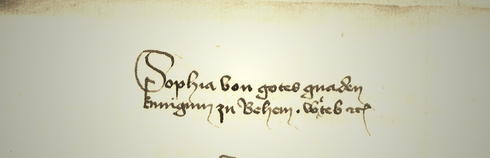 Sophia von gotes gnaden
kuniginn zu Behem . witeb etc